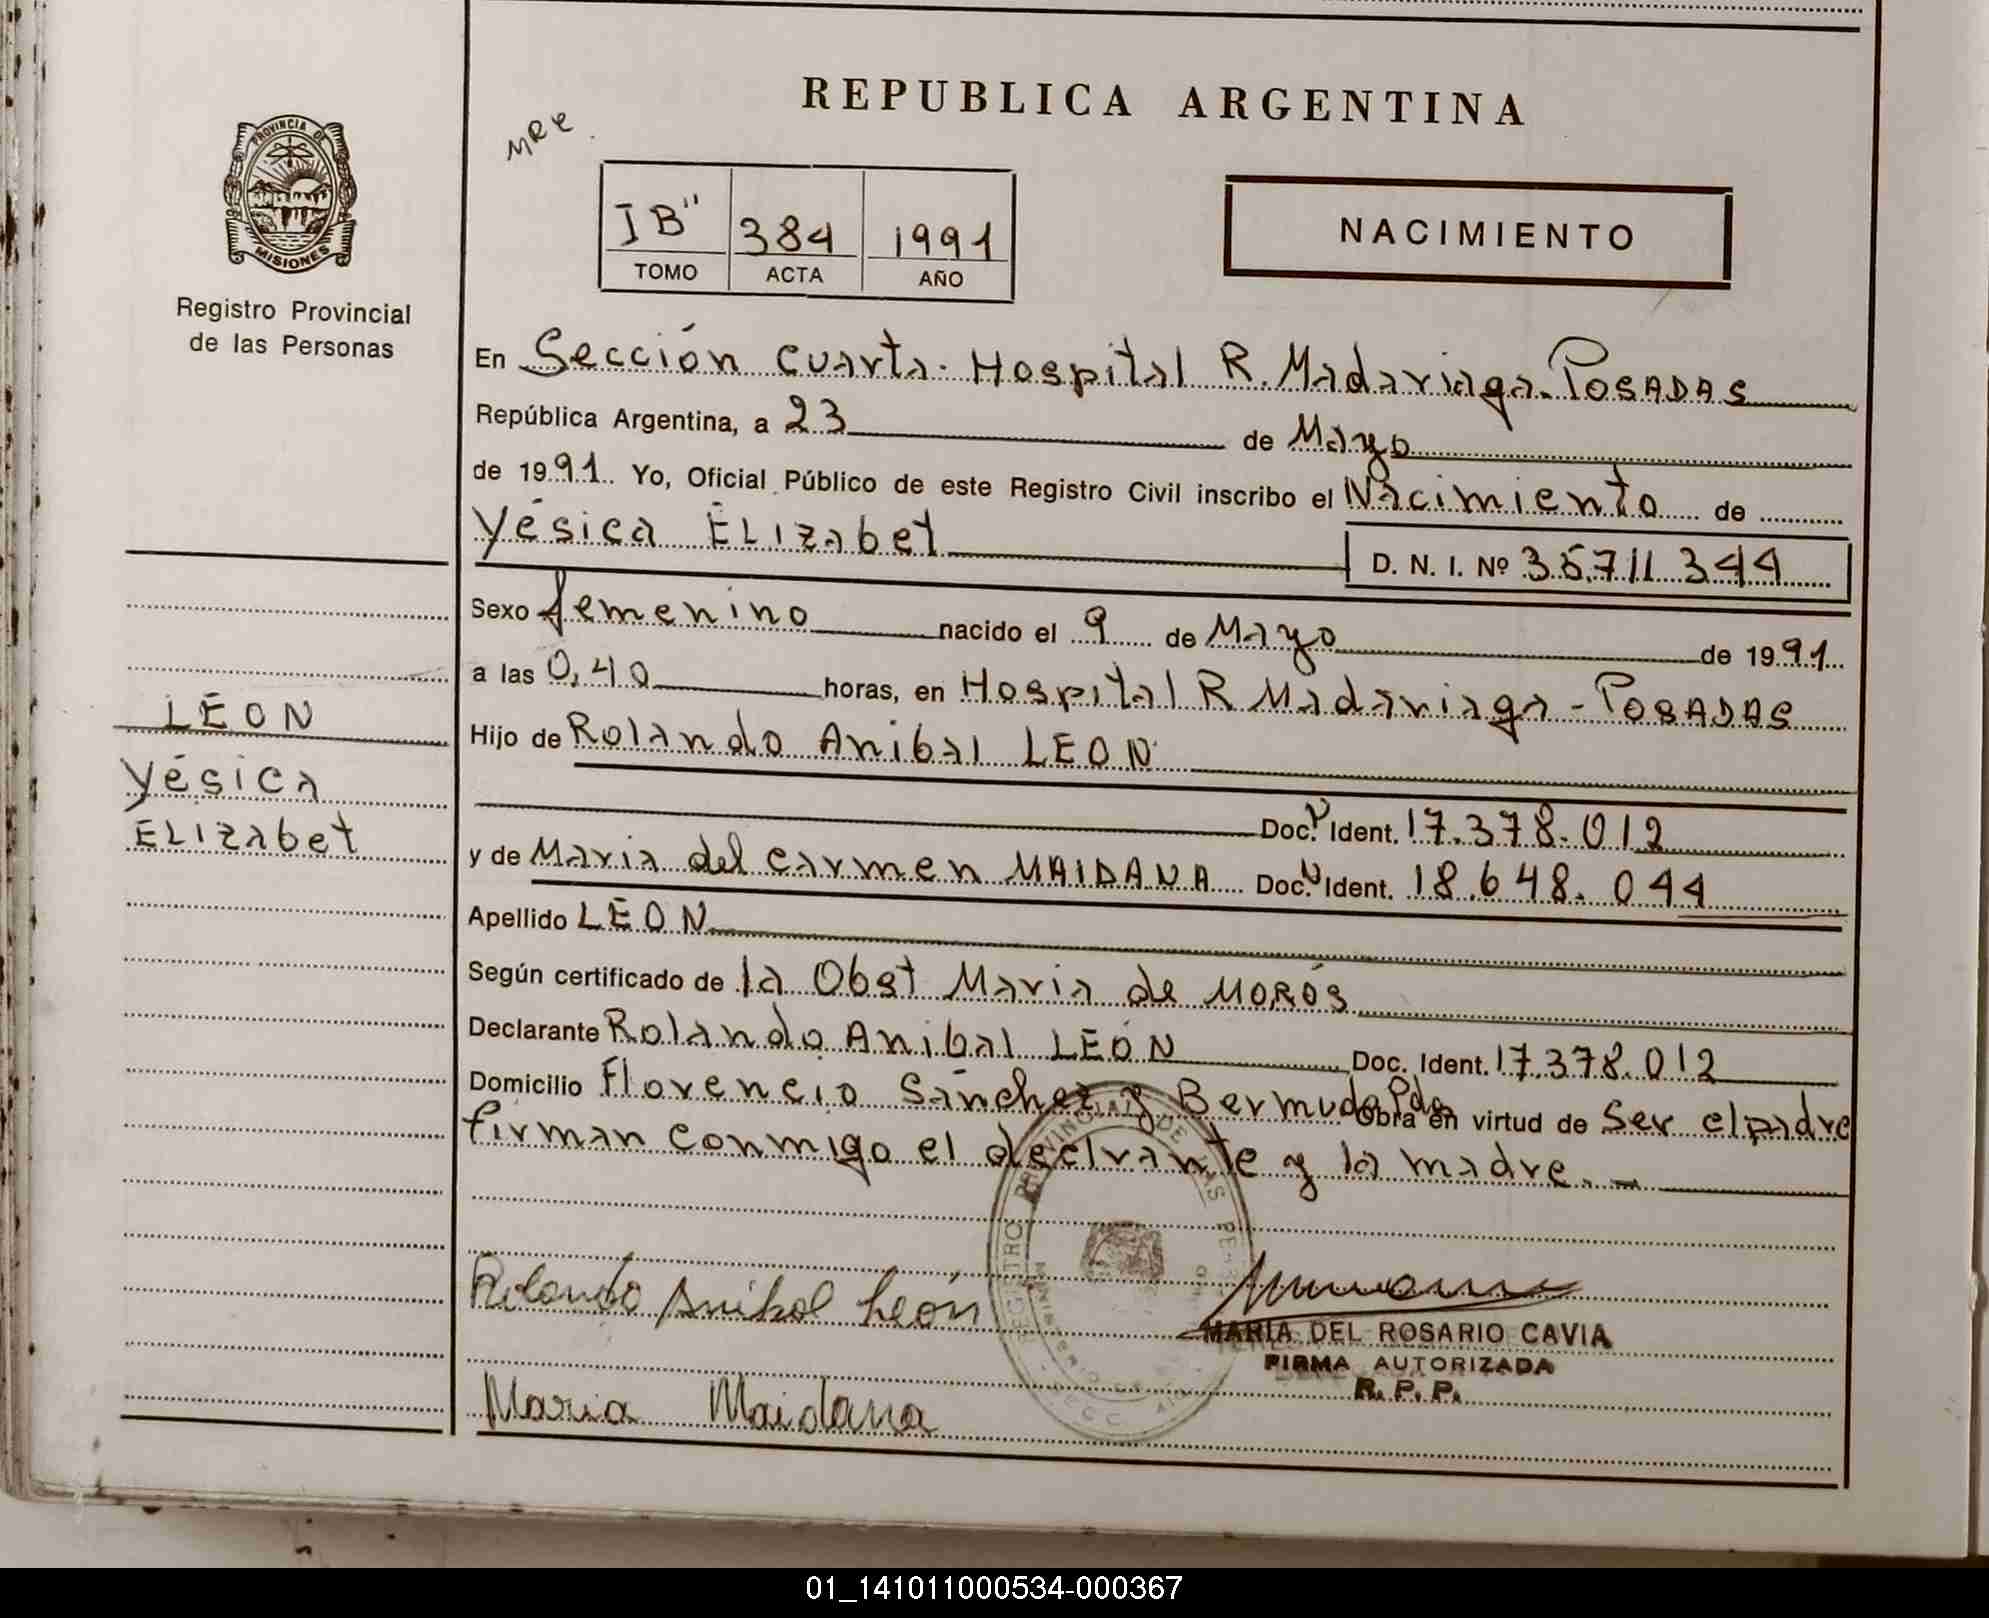 REPUBLICA ARGENTINA
PROVINCIA DE
MISIONES
Registro Provincial
de las Personas
MRC.
IB" 384 1991
TOMO ACTA AÑO
NACIMIENTO
En Sección Cuarta. Hospital R. Madariaga. POSADAS
República Argentina, a 23 de Mayo
de 1991. Yo, Oficial Público de este Registro Civil inscribo el Nacimiento de
Yésica ELizabet
D. N. I. Nº 35.711.344
Sexo femenino nacido el 9 de Mayo de 1991
a las 0,40 horas, en Hospital R Madariaga - POSADAS
Hijo de Rolando Anibal LEON
Doc. Ident. 17.378.012
y de Maria del Carmen MAIDANA Doc. Ident. 18.648.044
Apellido LEON
Según certificado de la Obst Maria de MOROS
Declarante Rolando Anibal LEÓN Doc. Ident. 17.378.012
Domicilio Florencio Sánchez y Bermuda Pdas Obra en virtud de Ser el padre
firman conmigo el declrante y la madre. -
LEON
Yésica
ELizabet
REGISTRO PROVINCIAL DE LAS PE
Rolando Anibal León
MARIA DEL ROSARIO CAVIA
FIRMA AUTORIZADA
R. P. P.
Maria Maidana
01_141011000534-000367